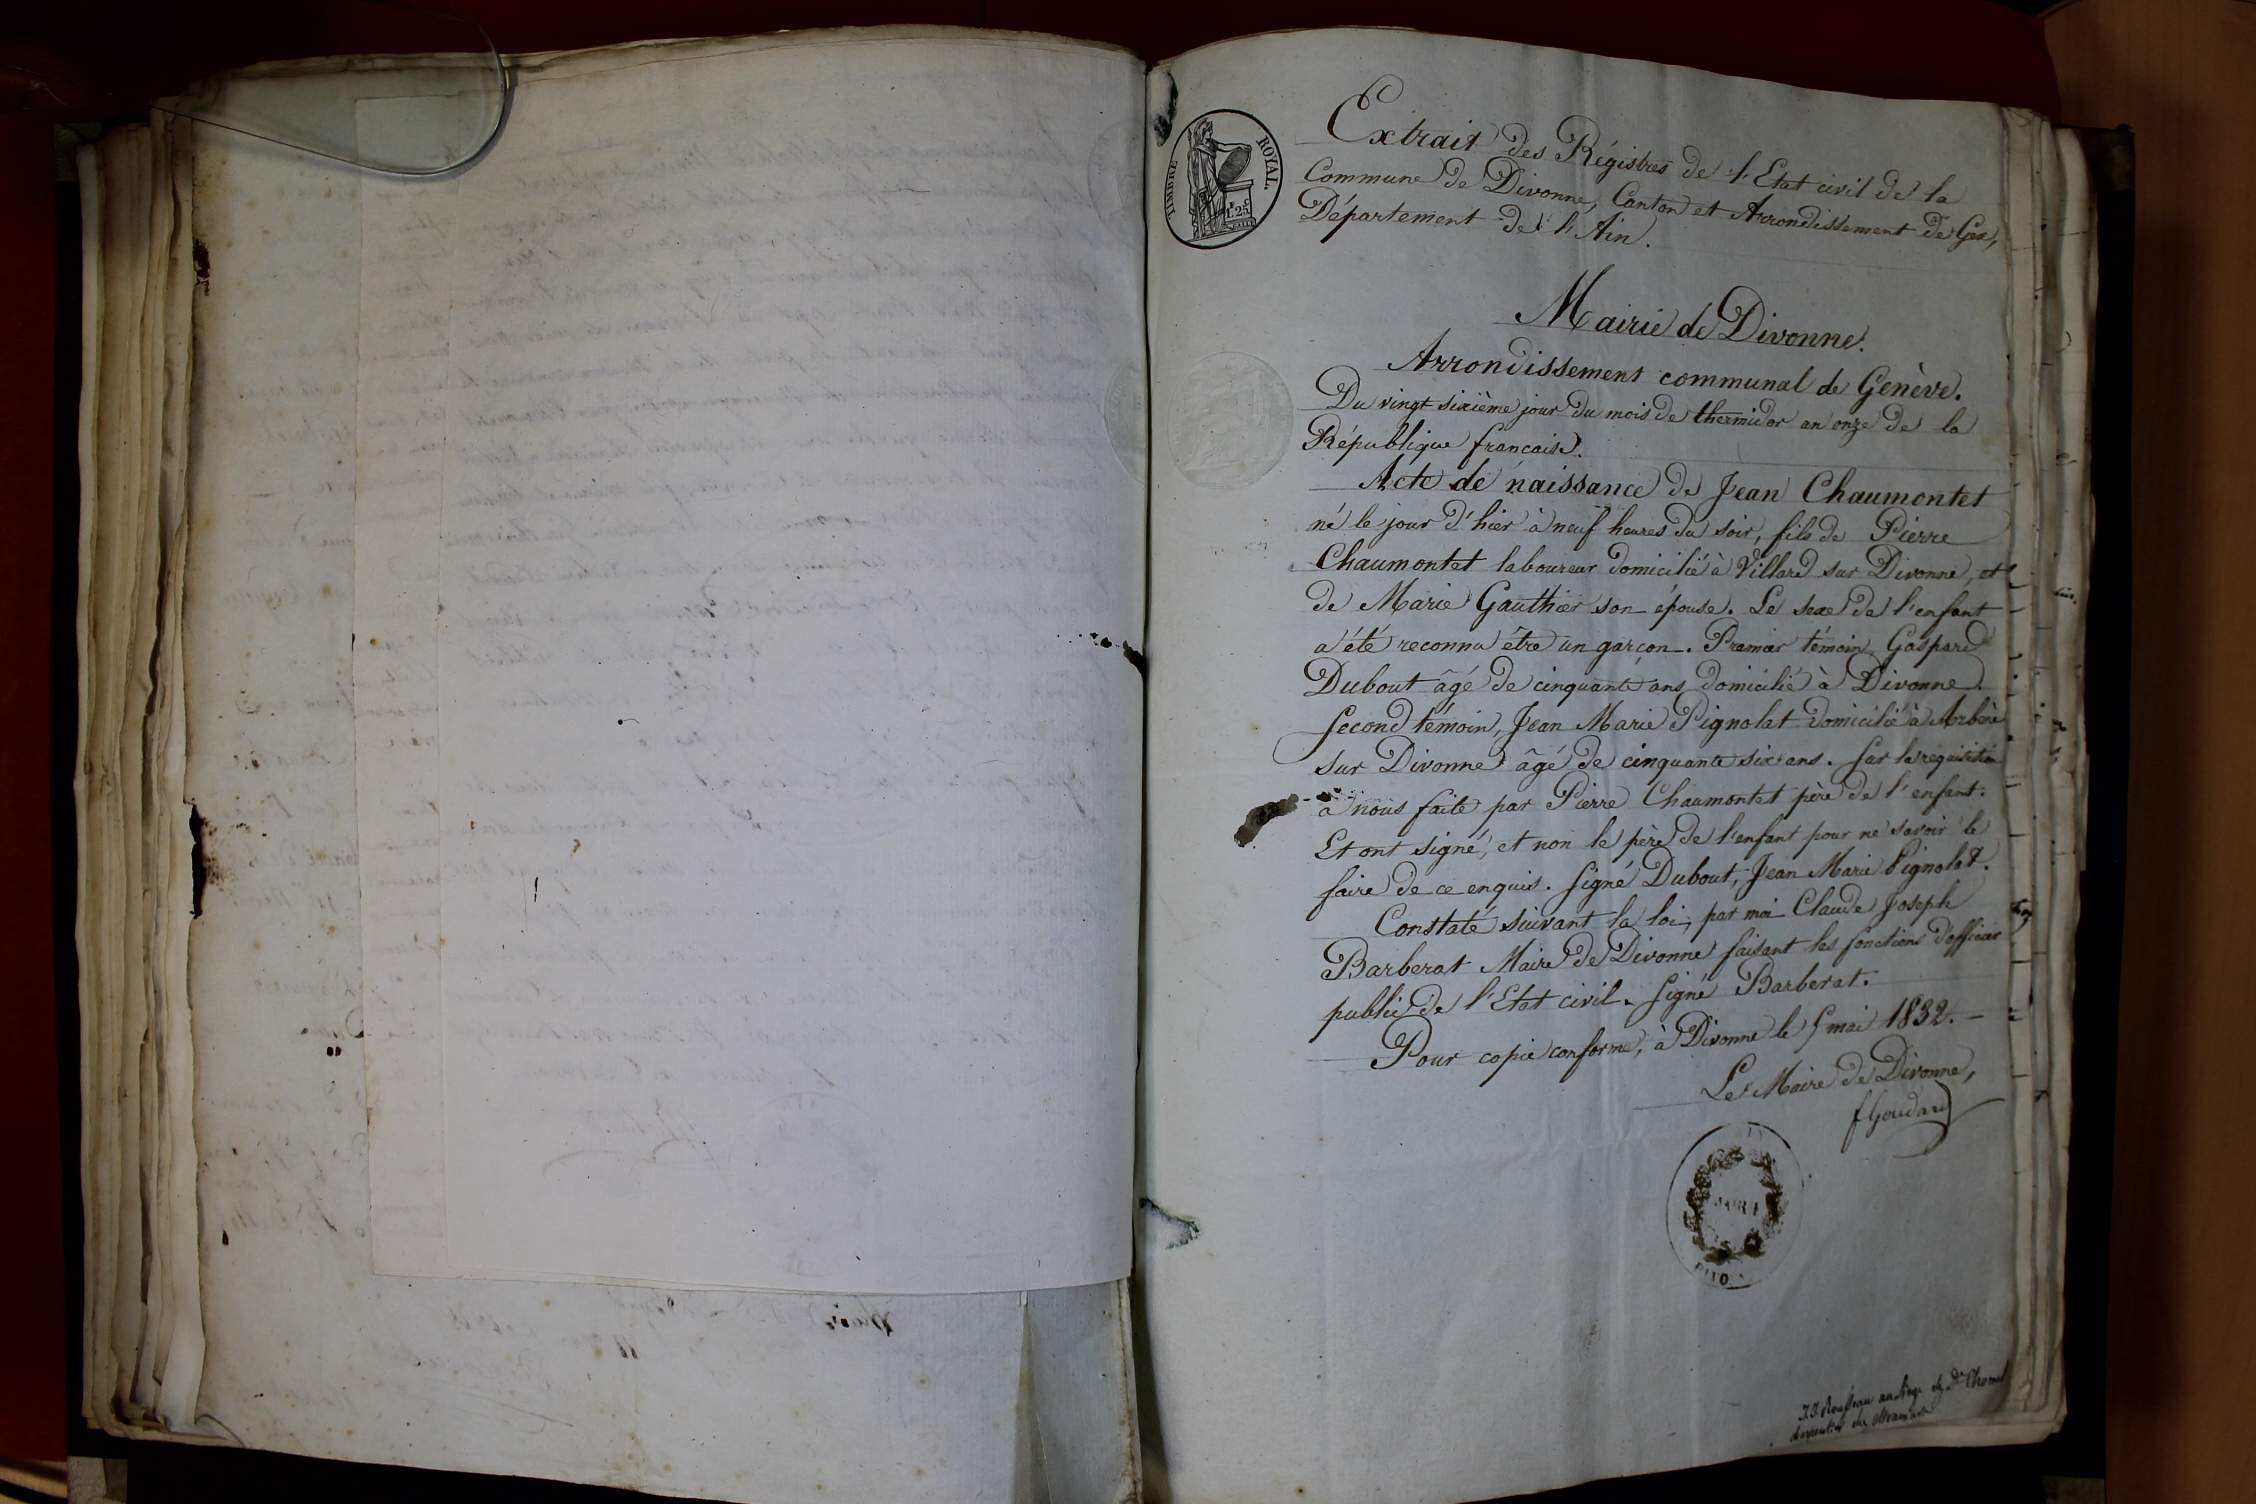 TIMBRE ROYAL.
Extrait des Régistres de l'Etat civil de la
Commune de Divonne, Canton et Arrondissement de Gex,
Département de l'Ain.
Mairie de Divonne.
Arrondissement communal de Genève.
Du vingt sixième jour du mois de thermidor an onze de la
République francaise.
Acte de naissance de Jean Chaumontet
né le jour d'hier à neuf heures du soir, fils de Pierre
Chaumontet laboureur domicilié à Villard sur Divonne, et
de Marie Gauthier son épouse. Le sexe de l'enfant
a été reconnu être un garçon. Premier témoin Gaspard
Dubout âgé de cinquante ans domicilié à Divonne.
Second témoin, Jean Marie Pignolat domicilié à Arbère
sur Divonne âgé de cinquante six ans. Sur la réquisition
à nous faite par Pierre Chaumontet père de l'enfant.
Et ont signé, et non le père de l'enfant pour ne savoir le
faire de ce enquis. Signé Dubout, Jean Marie Pignolat.
Constaté suivant la loi, par moi Claude Joseph
Barberat Maire de Divonne faisant les fonctions d'officier
public de l'Etat civil. Signé Barberat.
Pour copie conforme, à Divonne le 5 mai 1832.
Le Maire de Divonne,
Goudard
MAIRIE
J. J. Rousseau